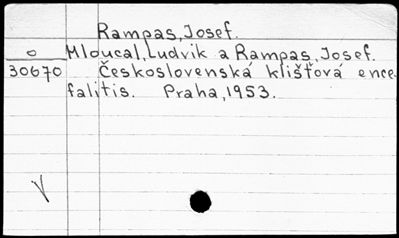 Rampas, Josef.
o Mloucal, Ludvik a Rampas, Josef.
30670 Československá klíšťová ence-
falitis. Praha, 1953.